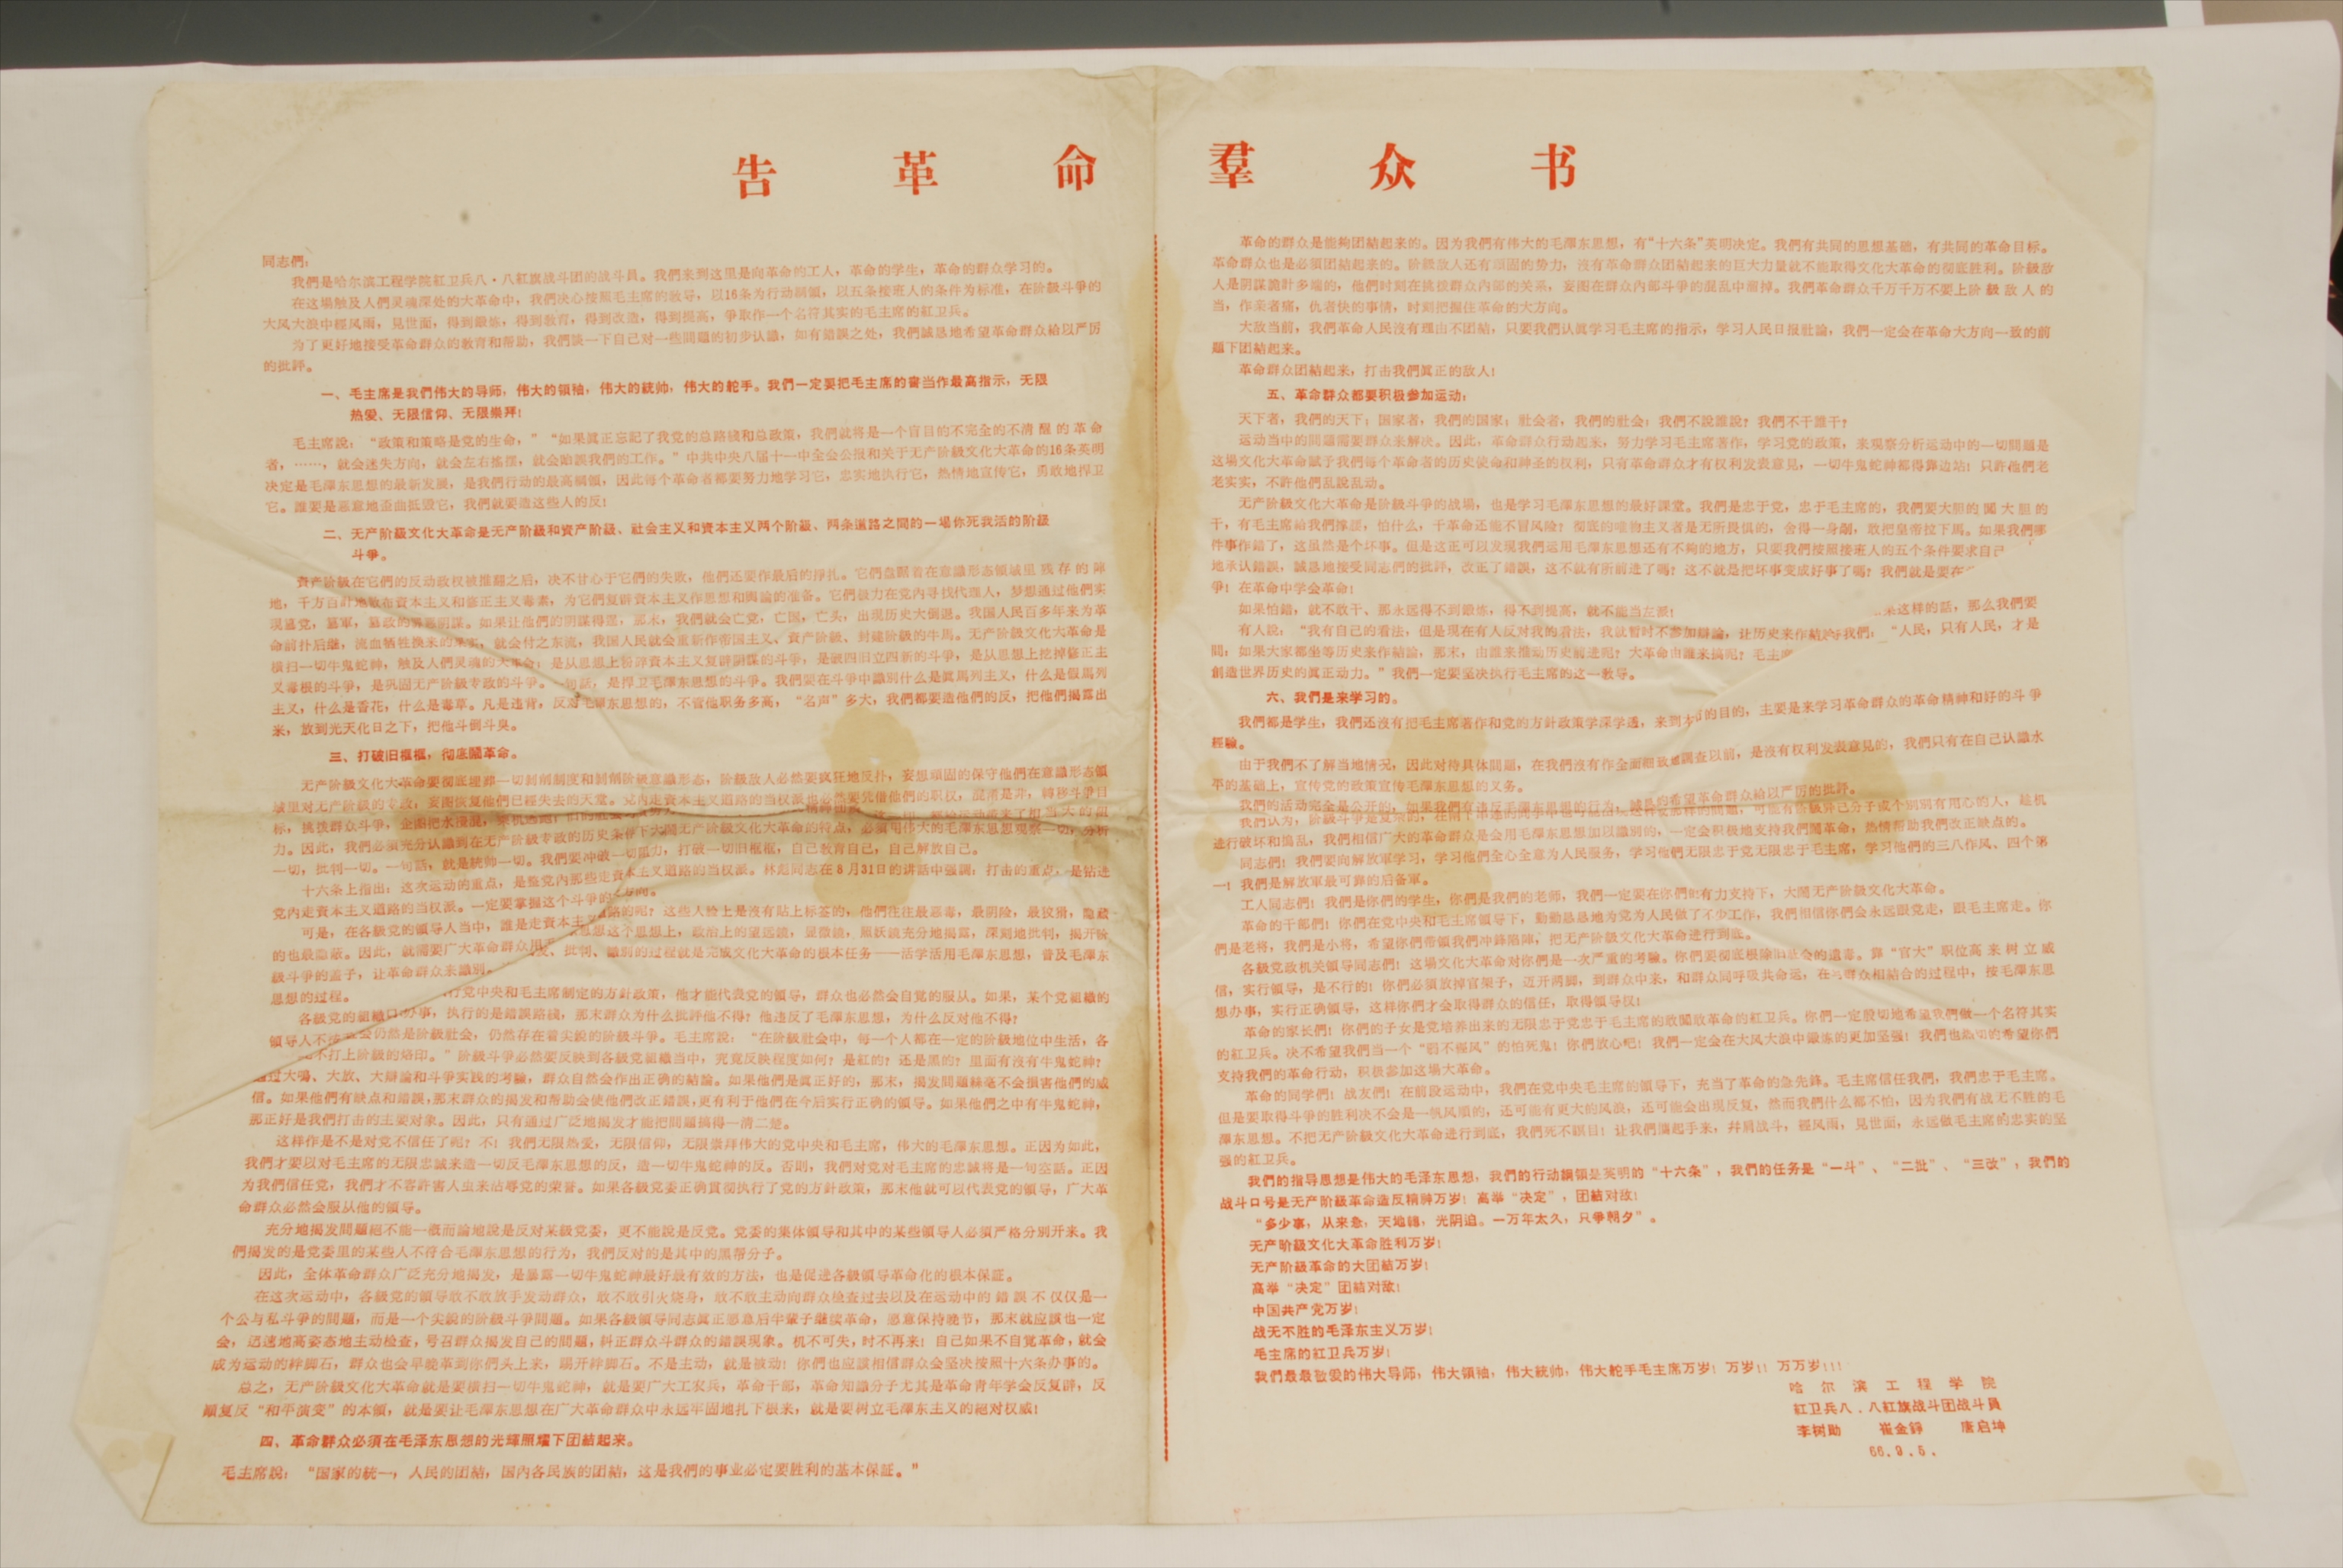 告革命羣众书
同志們：
我們是哈尔滨工程学院紅卫兵八·八紅旗战斗团的战斗員。我們来到这里是向革命的工人，革命的学生，革命的群众学习的。
在这場触及人們灵魂深处的大革命中，我們决心按照毛主席的教导，以16条为行动綱領，以五条接班人的条件为标准，在阶級斗爭的
大风大浪中經风雨，見世面，得到鍛炼，得到教育，得到改造，得到提高，爭取作一个名符其实的毛主席的紅卫兵。
为了更好地接受革命群众的教育和帮助，我們談一下自己对一些問題的初步认識，如有錯誤之处，我們誠恳地希望革命群众給以严厉
的批評。
一、毛主席是我們伟大的导师，伟大的領袖，伟大的統帅，伟大的舵手。我們一定要把毛主席的書当作最高指示，无限
热爱、无限信仰、无限崇拜！
毛主席說：“政策和策略是党的生命，”“如果眞正忘記了我党的总路綫和总政策，我們就将是一个盲目的不完全的不清醒的革命
者，……，就会迷失方向，就会左右搖摆，就会貽誤我們的工作。”中共中央八届十一中全会公报和关于无产阶級文化大革命的16条英明
决定是毛澤东思想的最新发展，是我們行动的最高綱領，因此每个革命者都要努力地学习它，忠实地执行它，热情地宣传它，勇敢地捍卫
它。誰要是恶意地歪曲詆毁它，我們就要造这些人的反！
二、无产阶級文化大革命是无产阶級和資产阶級、社会主义和資本主义两个阶級、两条道路之間的一場你死我活的阶級
斗爭。
資产阶級在它們的反动政权被推翻之后，决不甘心于它們的失敗，他們还要作最后的掙扎。它們盘踞着在意識形态領域里残存的陣
地，千方百計地散布資本主义和修正主义毒素，为它們复辟資本主义作思想和輿論的准备。它們极力在党内寻找代理人，梦想通过他們实
現篡党，篡軍，篡政的罪恶阴謀。如果让他們的阴謀得逞，那末，我們就会亡党，亡国，亡头，出現历史大倒退。我国人民百多年来为革
命前扑后继，流血牺牲换来的果实，就会付之东流，我国人民就会重新作帝国主义、資产阶級、封建阶級的牛馬。无产阶級文化大革命是
横扫一切牛鬼蛇神，触及人們灵魂的大革命；是从思想上粉碎資本主义复辟阴謀的斗爭，是破四旧立四新的斗爭，是从思想上挖掉修正主
义毒根的斗爭，是巩固无产阶級专政的斗爭。一句話，是捍卫毛澤东思想的斗爭。我們要在斗爭中識别什么是眞馬列主义，什么是假馬列
主义，什么是香花，什么是毒草。凡是违背，反对毛澤东思想的，不管他职务多高，“名声”多大，我們都要造他們的反，把他們揭露出
来，放到光天化日之下，把他斗倒斗臭。
三、打破旧框框，彻底鬧革命。
无产阶級文化大革命要彻底埋葬一切剝削制度和剝削阶級意識形态，阶級敌人必然要疯狂地反扑，妄想頑固的保守他們在意識形态領
域里对无产阶級的专政，妄图恢复他們已經失去的天堂。党内走資本主义道路的当权派也必然要凭借他們的职权，混淆是非，轉移斗爭目
标，挑拨群众斗爭，企图把水攪混，乘机逃跑！
力。因此，我們必須充分认識到在无产阶級专政的历史条件下大鬧无产阶級文化大革命的特点，必須用伟大的毛澤东思想观察一切，分析
一切，批判一切。一句話，就是統帅一切。我們要冲破一切阻力，打破一切旧框框，自己教育自己，自己解放自己。
十六条上指出：这次运动的重点，是整党内那些走資本主义道路的当权派。林彪同志在8月31日的讲話中强調：打击的重点，是钻进
党内走資本主义道路的当权派。一定要掌握这个斗爭的大方向。
可是，在各級党的領导人当中，誰是走資本主义道路的呢？这些人臉上是沒有貼上标签的，他們往往最恶毒，最阴险，最狡猾，隐蔽
的也最隐蔽。因此，就需要广大革命群众用 思想这个思想上，政治上的望远鏡，显微鏡，照妖鏡充分地揭露，深刻地批判，揭开阶
級斗爭的盖子，让革命群众来識别。 发、批判、識别的过程就是完成文化大革命的根本任务——活学活用毛澤东思想，普及毛澤东
思想的过程。
各級党的組織 行党中央和毛主席制定的方針政策，他才能代表党的領导，群众也必然会自覚的服从。如果，某个党組織的
領导人不按 办事，执行的是錯誤路綫，那末群众为什么批評他不得？他违反了毛澤东思想，为什么反对他不得？
会仍然是阶級社会，仍然存在着尖銳的阶級斗爭。毛主席說：“在阶級社会中，每一个人都在一定的阶級地位中生活，各
不打上阶級的烙印。”阶級斗爭必然要反映到各級党組織当中，究竟反映程度如何？是紅的？还是黑的？里面有沒有牛鬼蛇神？
通过大鳴、大放、大辯論和斗爭实践的考驗，群众自然会作出正确的結論。如果他們是眞正好的，那末，揭发問題絲毫不会損害他們的威
信。如果他們有缺点和錯誤，那末群众的揭发和帮助会使他們改正錯誤，更有利于他們在今后实行正确的領导。如果他們之中有牛鬼蛇神，
那正好是我們打击的主要对象。因此，只有通过广泛地揭发才能把問題搞得一清二楚。
这样作是不是对党不信任了呢？不！我們无限热爱，无限信仰，无限崇拜伟大的党中央和毛主席，伟大的毛澤东思想。正因为如此，
我們才要以对毛主席的无限忠誠来造一切反毛澤东思想的反，造一切牛鬼蛇神的反。否則，我們对党对毛主席的忠誠将是一句空話。正因
为我們信任党，我們才不容許害人虫来沾辱党的荣誉。如果各級党委正确貫彻执行了党的方針政策，那末他就可以代表党的領导，广大革
命群众必然会服从他的領导。
充分地揭发問題絕不能一概而論地說是反对某級党委，更不能說是反党。党委的集体領导和其中的某些領导人必須严格分别开来。我
們揭发的是党委里的某些人不符合毛澤东思想的行为，我們反对的是其中的黑帮分子。
因此，全体革命群众广泛充分地揭发，是暴露一切牛鬼蛇神最好最有效的方法，也是促进各級領导革命化的根本保証。
在这次运动中，各級党的領导敢不敢放手发动群众，敢不敢引火烧身，敢不敢主动向群众检查过去以及在运动中的錯誤不仅仅是一
个公与私斗爭的問題，而是一个尖銳的阶級斗爭問題。如果各級領导同志眞正愿意后半輩子继续革命，愿意保持晚节，那末就应該也一定
会，迅速地高姿态地主动检查，号召群众揭发自己的問題，糾正群众斗群众的錯誤現象。机不可失，时不再来！自己如果不自覚革命，就会
成为运动的絆脚石，群众也会早晚革到你們头上来，踢开絆脚石。不是主动，就是被动！你們也应該相信群众会坚决按照十六条办事的。
总之，无产阶級文化大革命就是要横扫一切牛鬼蛇神，就是要广大工农兵，革命干部，革命知識分子尤其是革命青年学会反复辟，反
顛复反“和平演变”的本領，就是要让毛澤东思想在广大革命群众中永远牢固地扎下根来，就是要树立毛澤东主义的絕对权威！
四、革命群众必須在毛泽东思想的光輝照耀下团結起来。
毛主席說：“国家的統一，人民的团結，国内各民族的团結，这是我們的事业必定要胜利的基本保証。”
革命的群众是能夠团結起来的。因为我們有伟大的毛澤东思想，有“十六条”英明决定。我們有共同的思想基础，有共同的革命目标。
革命群众也是必須团結起来的。阶級敌人还有頑固的势力，沒有革命群众团結起来的巨大力量就不能取得文化大革命的彻底胜利。阶級敌
人是阴謀詭計多端的，他們时刻在挑拨群众内部的关系，妄图在群众内部斗爭的混乱中溜掉。我們革命群众千万千万不要上阶級敌人的
当，作亲者痛，仇者快的事情，时刻把握住革命的大方向。
大敌当前，我們革命人民沒有理由不团結，只要我們认眞学习毛主席的指示，学习人民日报社論，我們一定会在革命大方向一致的前
題下团結起来。
革命群众团結起来，打击我們眞正的敌人！
五、革命群众都要积极参加运动：
天下者，我們的天下；国家者，我們的国家；社会者，我們的社会；我們不說誰說？我們不干誰干？
运动当中的問題需要群众来解决。因此，革命群众行动起来，努力学习毛主席著作，学习党的政策，来观察分析运动中的一切問題是
这場文化大革命賦予我們每个革命者的历史使命和神圣的权利，只有革命群众才有权利发表意見，一切牛鬼蛇神都得靠边站！只許他們老
老实实，不許他們乱說乱动。
无产阶級文化大革命是阶級斗爭的战場，也是学习毛澤东思想的最好課堂。我們是忠于党，忠于毛主席的，我們要大胆的闖大胆的
干，有毛主席給我們撑腰，怕什么，干革命还能不冒风险？彻底的唯物主义者是无所畏惧的，舍得一身剮，敢把皇帝拉下馬。如果我們哪
件事作錯了，这虽然是个坏事。但是这正可以发現我們运用毛澤东思想还有不夠的地方，只要我們按照接班人的五个条件要求自己
地承认錯誤，誠恳地接受同志們的批評，改正了錯誤，这不就有所前进了嗎？这不就是把坏事变成好事了嗎？我們就是要在
爭！在革命中学会革命！
如果怕錯，就不敢干、那永远得不到鍛炼，得不到提高，就不能当左派！
有人說：“我有自己的看法，但是現在有人反对我的看法，我就暂时不参加辯論，让历史来作結論 果这样的話，那么我們要
問：如果大家都坐等历史来作結論，那末，由誰来推动历史前进呢？大革命由誰来搞呢？毛主席 我們：“人民，只有人民，才是
創造世界历史的眞正动力。”我們一定要坚决执行毛主席的这一教导。
六、我們是来学习的。
我們都是学生，我們还沒有把毛主席著作和党的方針政策学深学透，来到 的目的，主要是来学习革命群众的革命精神和好的斗爭
經驗。
由于我們不了解当地情况，因此对待具体問題，在我們沒有作全面細致地調查以前，是沒有权利发表意見的，我們只有在自己认識水
平的基础上，宣传党的政策宣传毛澤东思想的义务。
我們的活动完全是公开的，如果我們有违反毛澤东思想的行为，誠恳的希望革命群众給以严厉的批評。
我們认为，阶級斗爭是复杂的， 可能有阶級异己分子或个别别有用心的人，趁机
进行破坏和搗乱，我們相信广大的革命群众是会用毛澤东思想加以識别的，一定会积极地支持我們鬧革命，热情帮助我們改正缺点的。
同志們！我們要向解放軍学习，学习他們全心全意为人民服务，学习他們无限忠于党无限忠于毛主席，学习他們的三八作风、四个第
一！我們是解放軍最可靠的后备軍。
工人同志們！我們是你們的学生，你們是我們的老师，我們一定要在你們的有力支持下，大鬧无产阶級文化大革命。
革命的干部們！你們在党中央和毛主席領导下，勤勤恳恳地为党为人民做了不少工作，我們相信你們会永远跟党走，跟毛主席走。你
們是老将，我們是小将，希望你們带領我們冲鋒陷陣，把无产阶級文化大革命进行到底。
各級党政机关領导同志們！这場文化大革命对你們是一次严重的考驗。你們要彻底根除旧社会的遗毒。靠“官大”职位高来树立威
信，实行領导，是不行的！你們必須放掉官架子，迈开两脚，到群众中来，和群众同呼吸共命运，在与群众相結合的过程中，按毛澤东思
想办事，实行正确領导，这样你們才会取得群众的信任，取得領导权！
革命的家长們！你們的子女是党培养出来的无限忠于党忠于毛主席的敢闖敢革命的紅卫兵。你們一定殷切地希望我們做一个名符其实
的紅卫兵。决不希望我們当一个“弱不經风”的怕死鬼！你們放心吧！我們一定会在大风大浪中鍛炼的更加坚强！我們也热切的希望你們
支持我們的革命行动，积极参加这場大革命。
革命的同学們！战友們！在前段运动中，我們在党中央毛主席的領导下，充当了革命的急先鋒。毛主席信任我們，我們忠于毛主席。
但是要取得斗爭的胜利决不会是一帆风順的，还可能有更大的风浪，还可能会出現反复，然而我們什么都不怕，因为我們有战无不胜的毛
澤东思想。不把无产阶級文化大革命进行到底，我們死不瞑目！让我們携起手来，幷肩战斗，經风雨，見世面，永远做毛主席的忠实的坚
强的紅卫兵。
我們的指导思想是伟大的毛泽东思想，我們的行动綱領是英明的“十六条”，我們的任务是“一斗”、“二批”、“三改”，我們的
战斗口号是无产阶級革命造反精神万岁！高举“决定”，团結对敌！
“多少事，从来急，天地轉，光阴迫。一万年太久，只爭朝夕”。
无产阶級文化大革命胜利万岁！
无产阶級革命的大团結万岁！
高举“决定”团結对敌！
中国共产党万岁！
战无不胜的毛泽东主义万岁！
毛主席的紅卫兵万岁！
我們最最敬爱的伟大导师，伟大領袖，伟大統帅，伟大舵手毛主席万岁！万岁！！万万岁！！！
哈尔滨工程学院
紅卫兵八．八紅旗战斗团战斗員
李树勋 崔金錚 唐启坤
66.9.5.